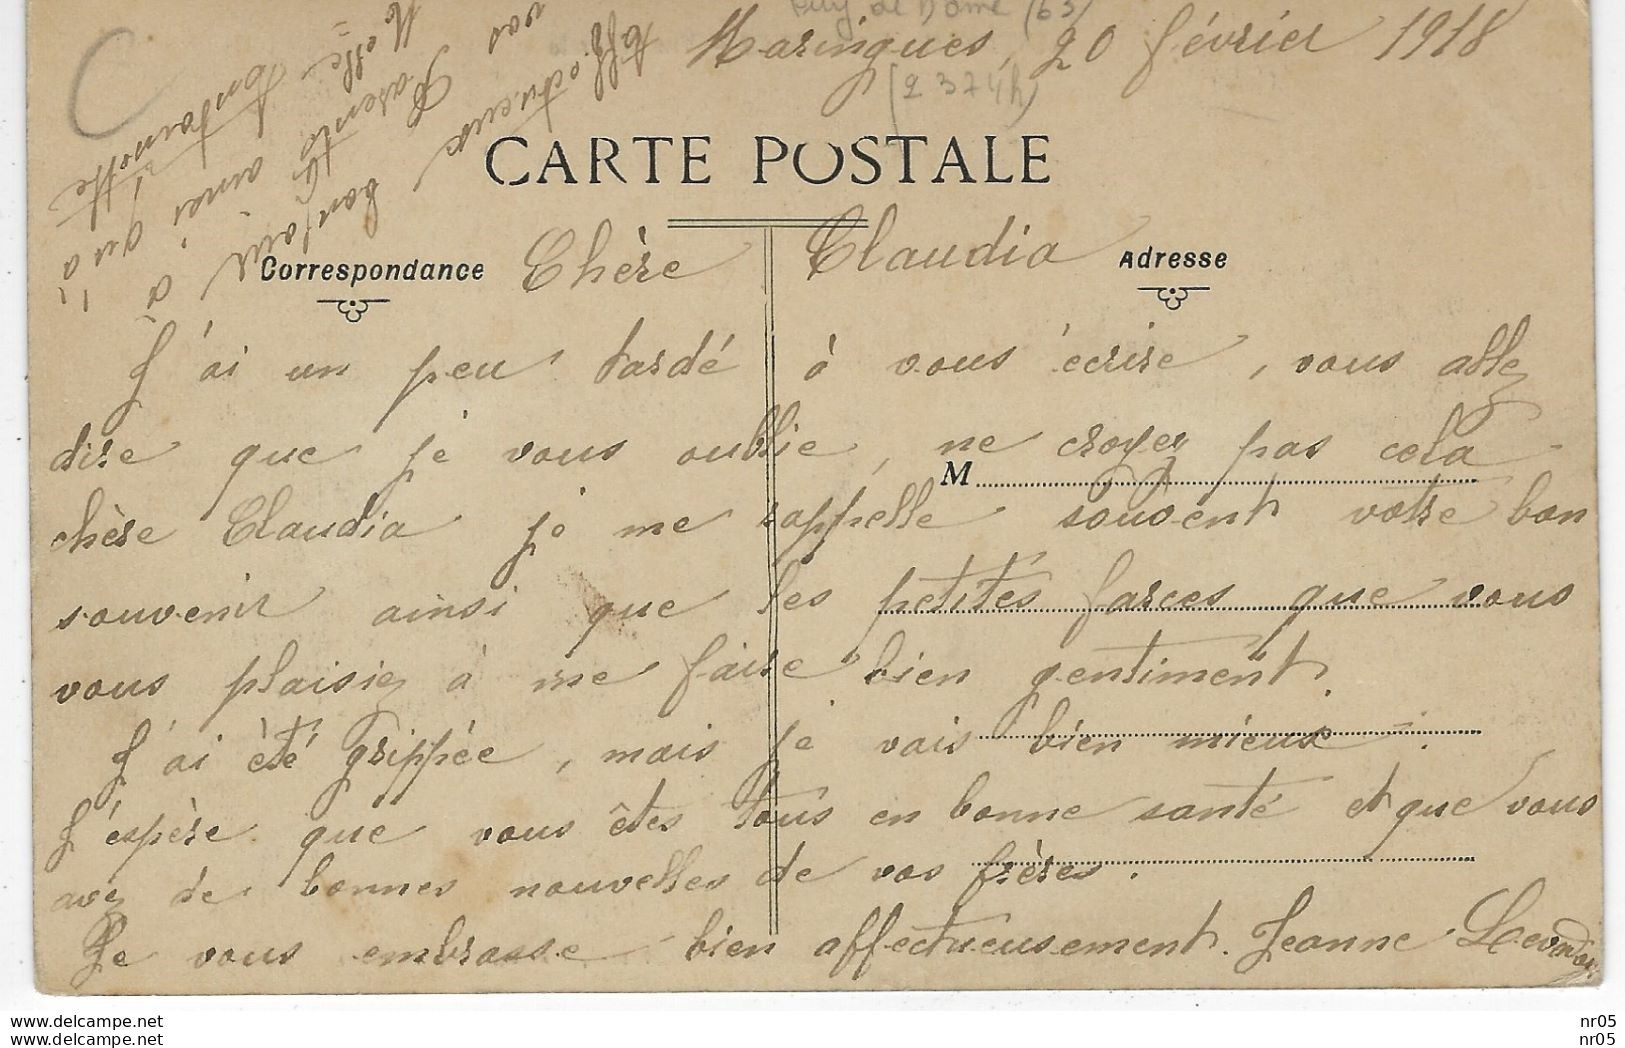 Puy de Dôme (63)
Maringues, 20 février 1918
(2 374h)
CARTE POSTALE
Correspondance
Adresse
Chère Claudia
J'ai un peu tardé à vous écrire, vous allez
dire que je vous oublie, ne croyez pas cela
M
chère Claudia je me rappelle souvent votre bon
souvenir ainsi que les petites farces que vous
vous plaisiez à me faire bien gentiment.
J'ai été grippée, mais je vais bien mieux.
J'espère que vous êtes tous en bonne santé et que vous
avez de bonnes nouvelles de vos frères.
Je vous embrasse bien affectueusement. Jeanne
Affectueux bonjour à
vos Parents ainsi qu'à
Melle
nr05
www.delcampe.net
www.delcampe.net
nr05